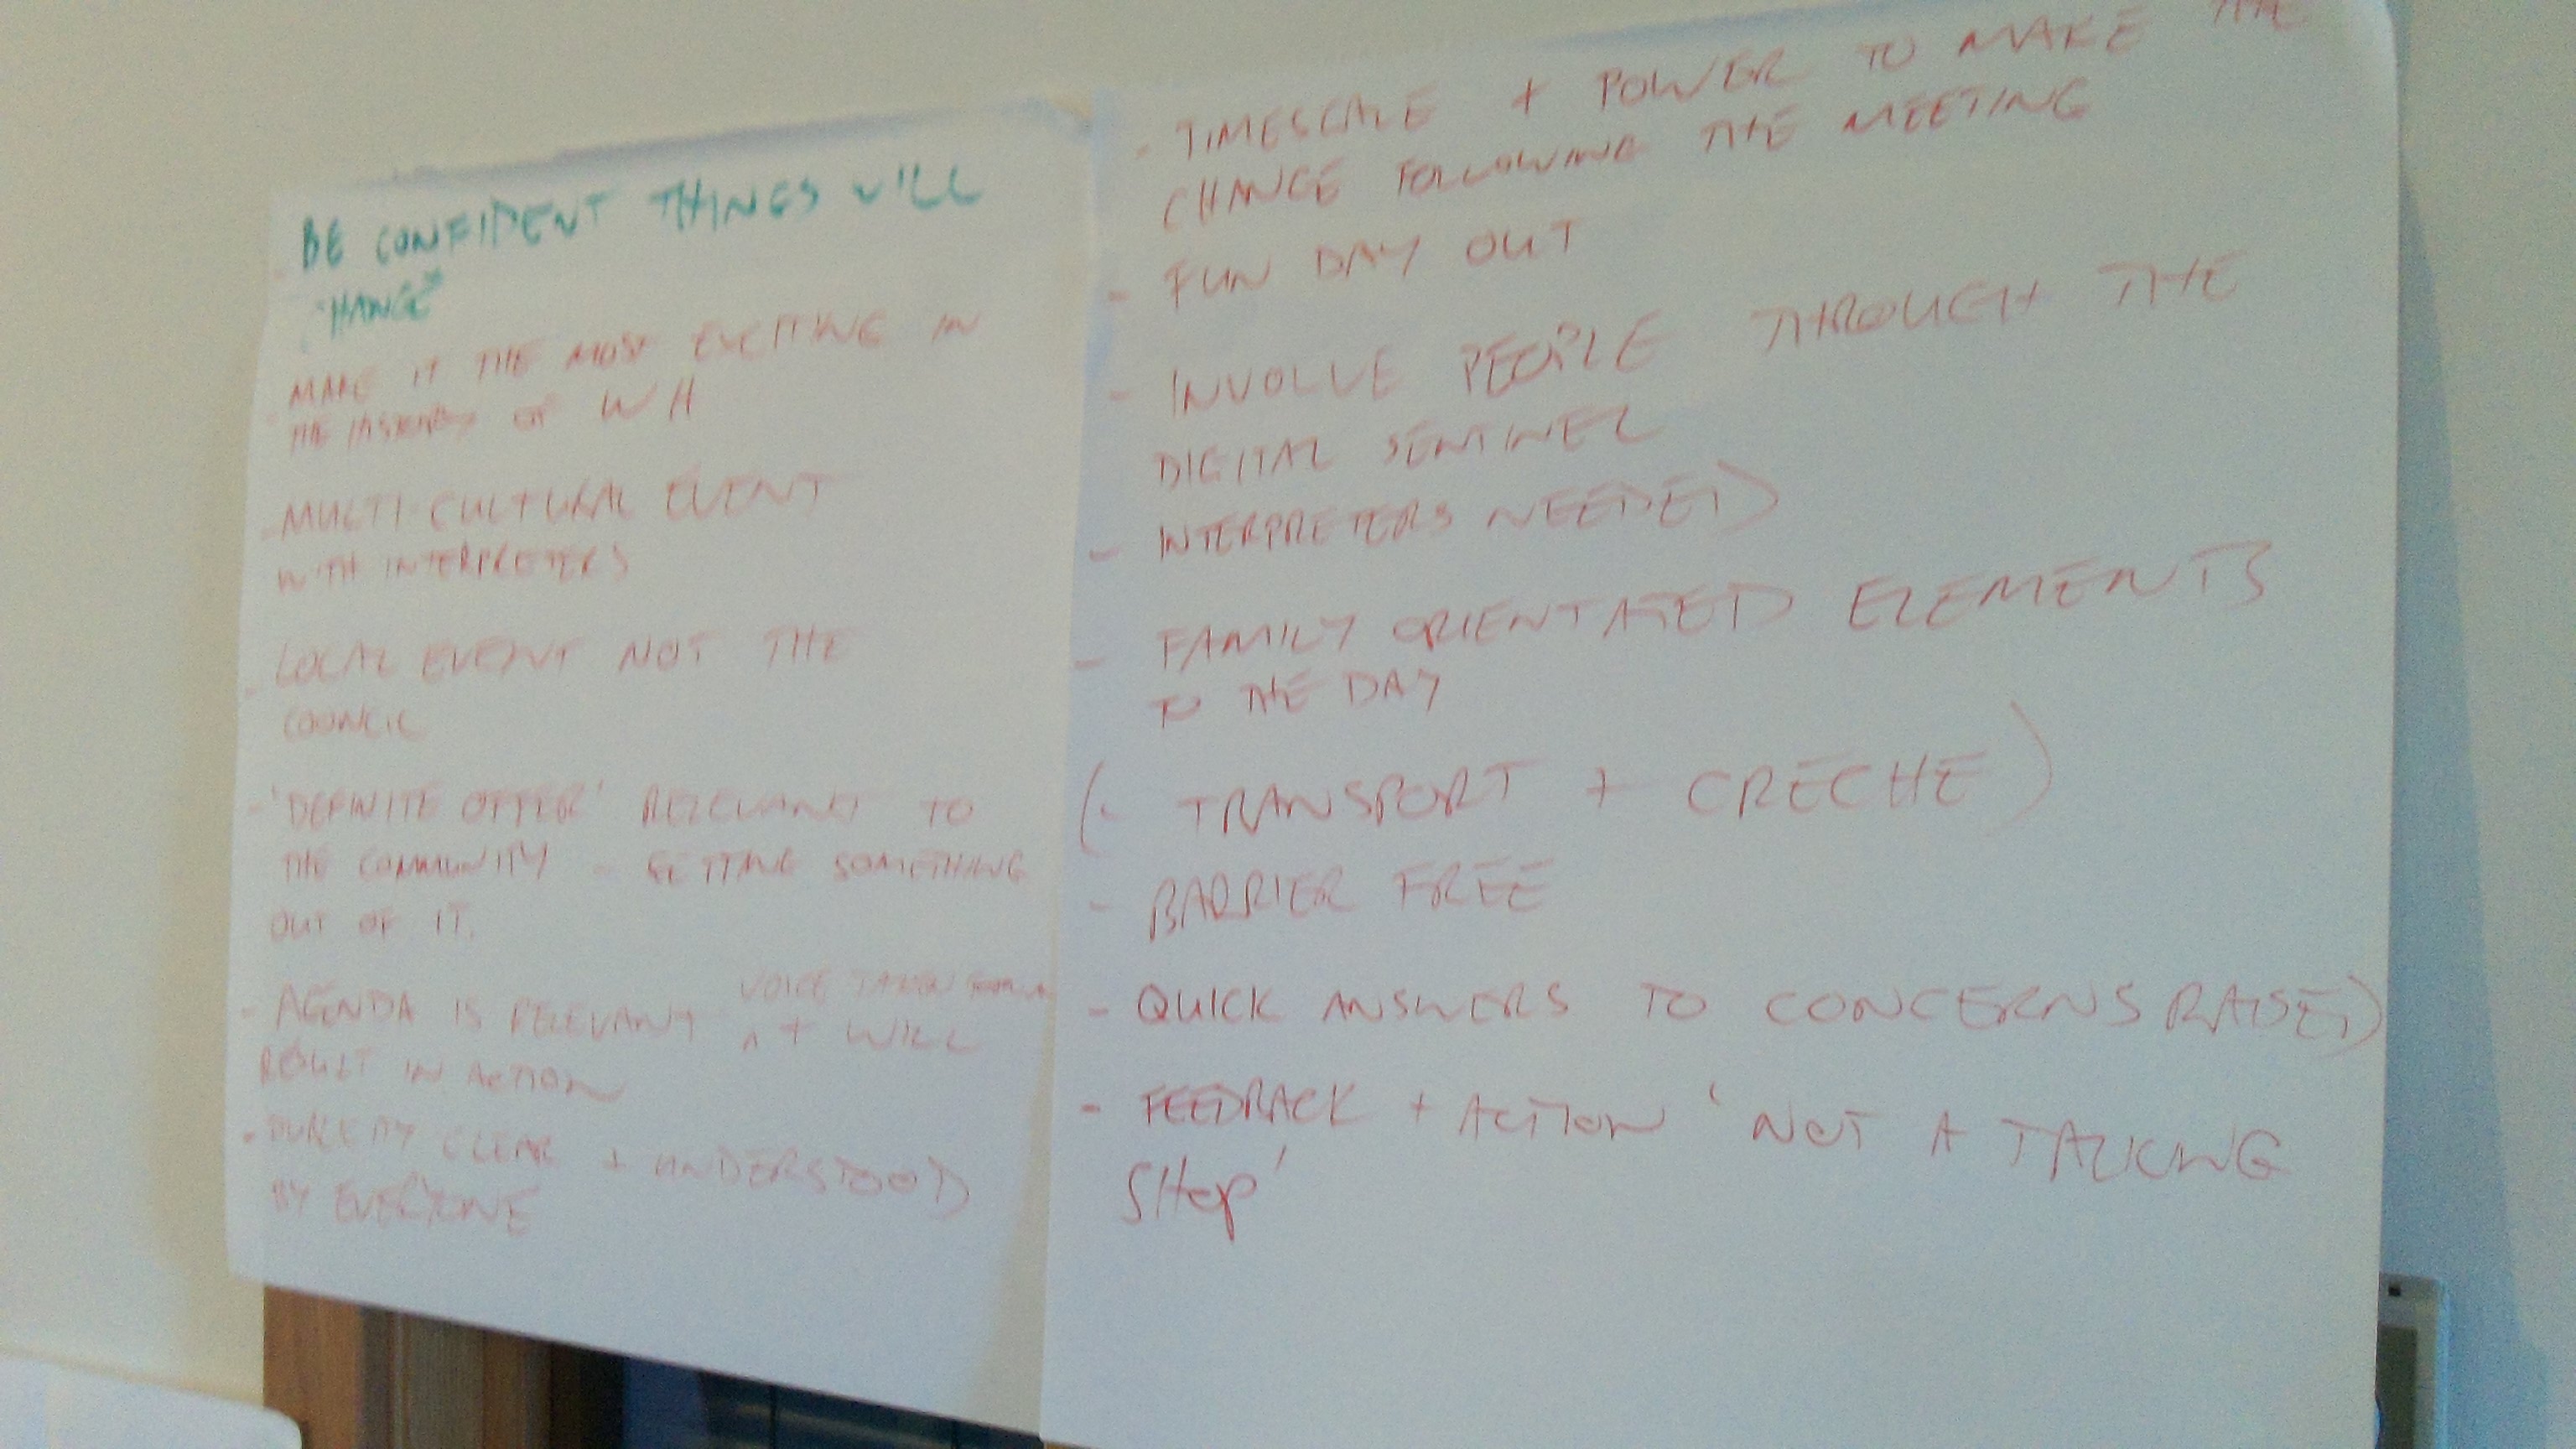 - BE CONFIDENT THINGS WILL
CHANGE"
- MAKE IT THE MOST EXCITING IN
THE HISTORY OF WH
- MULTI CULTURAL EVENT
WITH INTERPRETERS
- LOCAL EVENT NOT THE
COUNCIL
- 'DEFINITE OFFER' RELEVANT TO
THE COMMUNITY - GETTING SOMETHING
OUT OF IT.
VOICE TAKEN
- AGENDA IS RELEVANT ^ + WILL
RESULT IN ACTION
- CLEAR + UNDERSTOOD
BY EVERYONE
- TIMESCALE + POWER TO MAKE THE
CHANGE FOLLOWING THE MEETING
- FUN DAY OUT
- INVOLVE PEOPLE THROUGH THE
DIGITAL SENTINEL
- INTERPRETERS NEEDED
- FAMILY ORIENTATED ELEMENTS
TO THE DAY
(- TRANSPORT + CRECHE)
- BARRIER FREE
- QUICK ANSWERS TO CONCERNS RAISED
- FEEDBACK + ACTION 'NOT A TALKING
SHOP'